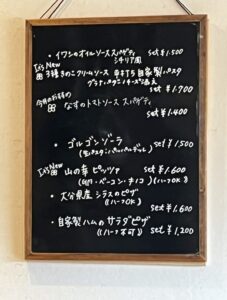 ・イワシのオイルソース スパゲティ set ¥1.500
シチリア風
It's New
3種きのこクリームソース 自家製パスタ
グラナパダーノチーズ添え
set ¥1.700
今月のおすすめ
なすのトマトソース スパゲティ
set ¥1.400
・ゴルゴンゾーラ set ¥1500
It's New
山の幸 ピッツァ set ¥1.600
ベーコン・キノコ)(ハーフOK)
・大分県産 シラスのピザ
(ハーフOK) set ¥1.600
・自家製ハムのサラダピザ
(ハーフ不可) set ¥1,200